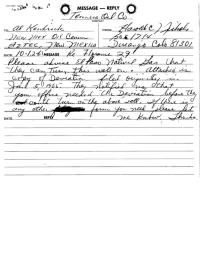 MESSAGE — REPLY
Tenneco Oil Co.
TO Al Kendrick
FROM Harold C. Nichols
New Mex Oil Comm
Box 1714
Aztec, New Mexico
Durango Colo 81301
DATE 10-12-65 MESSAGE Re Florance 29
Please advise El Paso Natural Gas that
they can turn this well on. Attached is
copy of Deviation filed originally in
Jan 5, 1965. They notified me that
your office needed the Deviation before they
could turn on the above well. If there is
any other form you need please let
DATE REPLY me know. Thanks
DATE